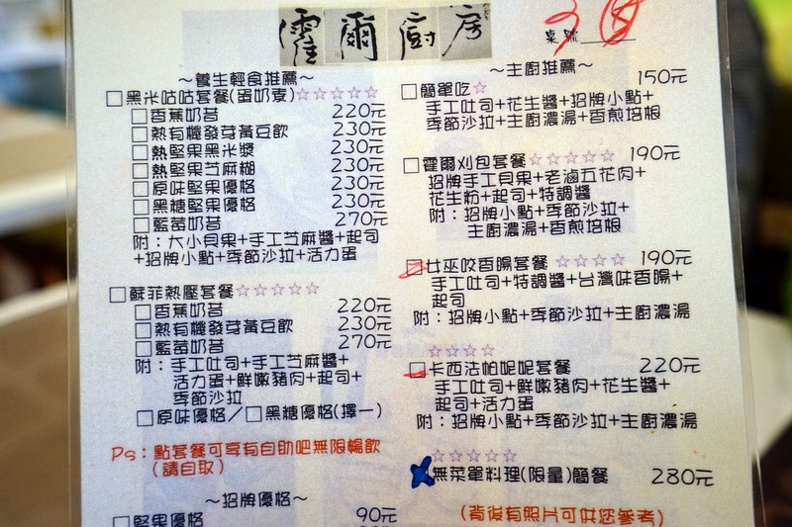 霍爾廚房
桌號
～養生輕食推薦～
黑米咕咕套餐(蛋奶素)☆☆☆☆☆
香蕉奶昔 220元
熱有機發芽黃豆飲 230元
熱堅果黑米漿 230元
熱堅果芝麻糊 230元
原味堅果優格 230元
黑糖堅果優格 230元
藍莓奶昔 270元
附：大小貝果+手工芝麻醬+起司
+招牌小點+季節沙拉+活力蛋
蘇菲熱壓套餐☆☆☆☆☆
香蕉奶昔 220元
熱有機發芽黃豆飲 230元
藍莓奶昔 270元
附：手工吐司+手工芝麻醬+
活力蛋+鮮嫩豬肉+起司+
季節沙拉
原味優格／黑糖優格(擇一)
Ps：點套餐可享有自助吧無限暢飲
(請自取)
～招牌優格～
堅果優格 90元
～主廚推薦～
簡單吃☆ 150元
手工吐司+花生醬+招牌小點+
季節沙拉+主廚濃湯+香煎培根
霍爾刈包套餐☆☆☆☆☆ 190元
招牌手工貝果+老滷五花肉+
花生粉+起司+特調醬
附：招牌小點+季節沙拉+
主廚濃湯+香煎培根
女巫咬香腸套餐☆☆☆☆ 190元
手工吐司+特調醬+台灣味香腸+
起司
附：招牌小點+季節沙拉+主廚濃湯
☆☆☆☆
卡西法帕妮妮套餐 220元
手工吐司+鮮嫩豬肉+花生醬+
起司+活力蛋
附：招牌小點+季節沙拉+主廚濃湯
☆☆☆☆☆
無菜單料理(限量)簡餐 280元
(背後有照片可供您參考)